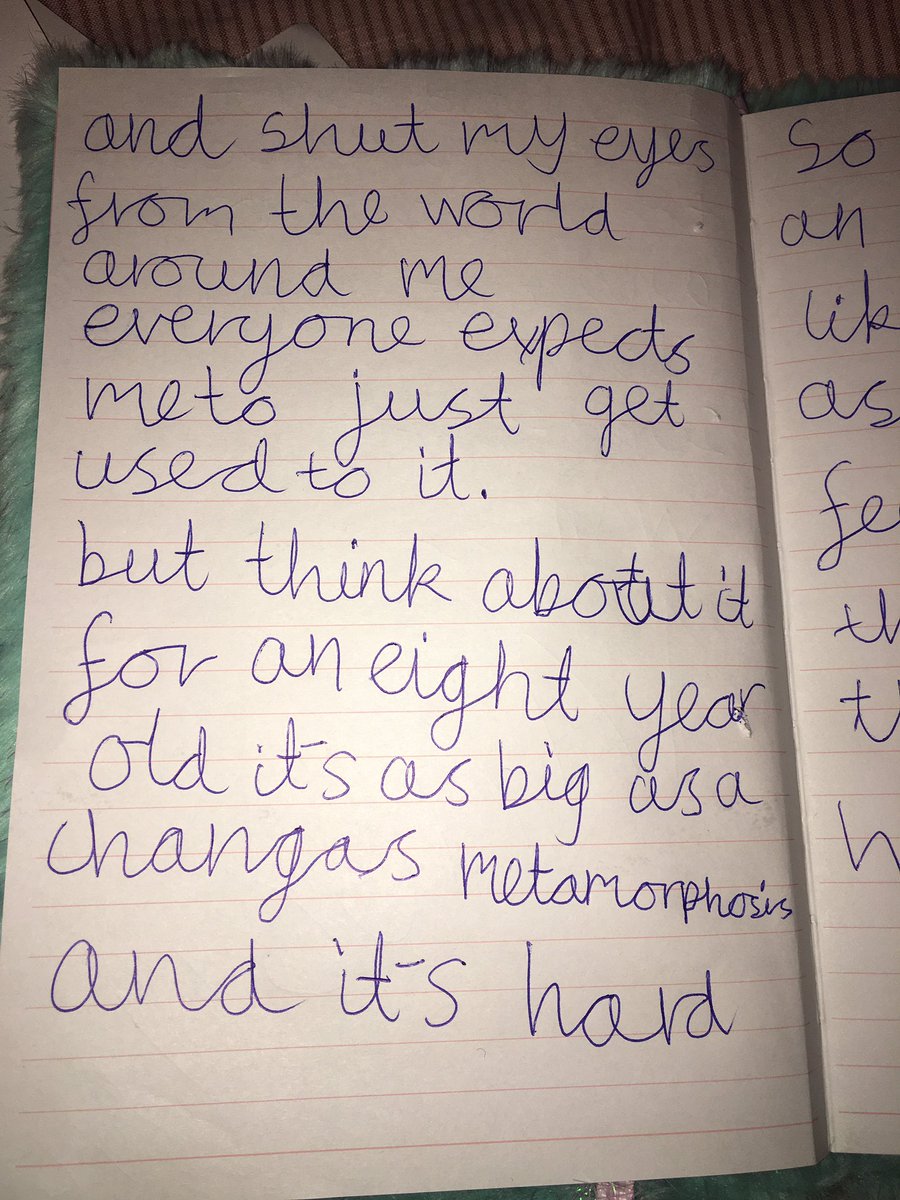 and shut my eyes
from the world
around me
everyone expects
me to just get
used to it.
but think about it
for an eight year
old it's as big as a
changas metamorphosis
and it's hard
So
an
lik
as
fe
th
t
h